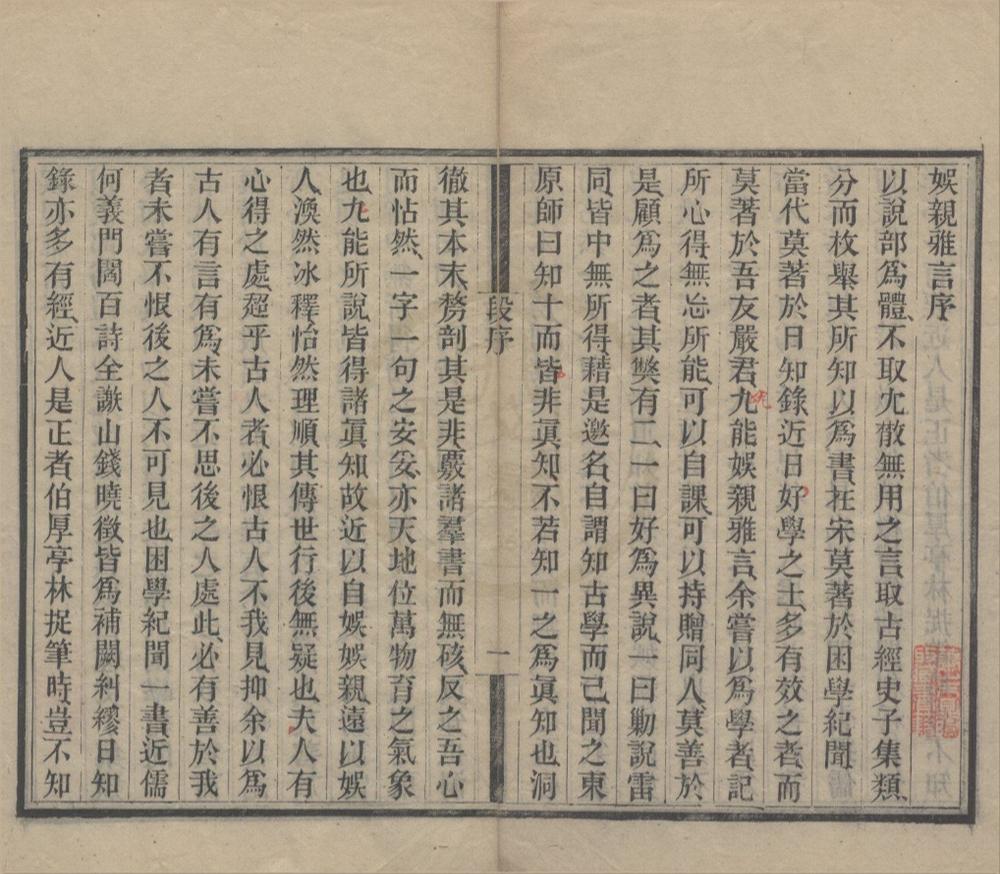 娛親雅言序
以說部爲體、不取宂散無用之言、取古經史子集類、
分而枚舉其所知以爲書、在宋莫著於困學紀聞
當代莫著於日知錄近日好學之士、多有效之者、而
莫著於吾友嚴君、九能娛親雅言、余嘗以爲學者、記
所心得、無忘所能、可以自課、可以持贈同人、莫善於
是、顧爲之者、其獘有二、一曰好爲異說、一曰勦說雷
同、皆中無所得、藉是邀名、自謂知古學而已、聞之東
原師曰知十而皆非眞知、不若知一之爲眞知也洞
段序
一
徹其本末、剺剖其是非、覈諸羣書而無礙、反之吾心
而怗然、一字一句之安妥、亦天地位萬物育之氣象
也、九能所說皆得諸眞知故近以自娛娛親、遠以娛
人、渙然冰釋怡然理順其傳世行後無疑也夫人有
心得之處、超乎古人者、必恨古人不我見、抑余以爲
古人有言有爲、未嘗不思後之人處此、必有善於我
者、未嘗不恨後之人不可見也困學紀聞一書、近儒
何義門閻百詩全謝山錢曉徵皆爲補闕糾繆日知
錄亦多有經、近人是正者、伯厚亭林捉筆時、豈不知